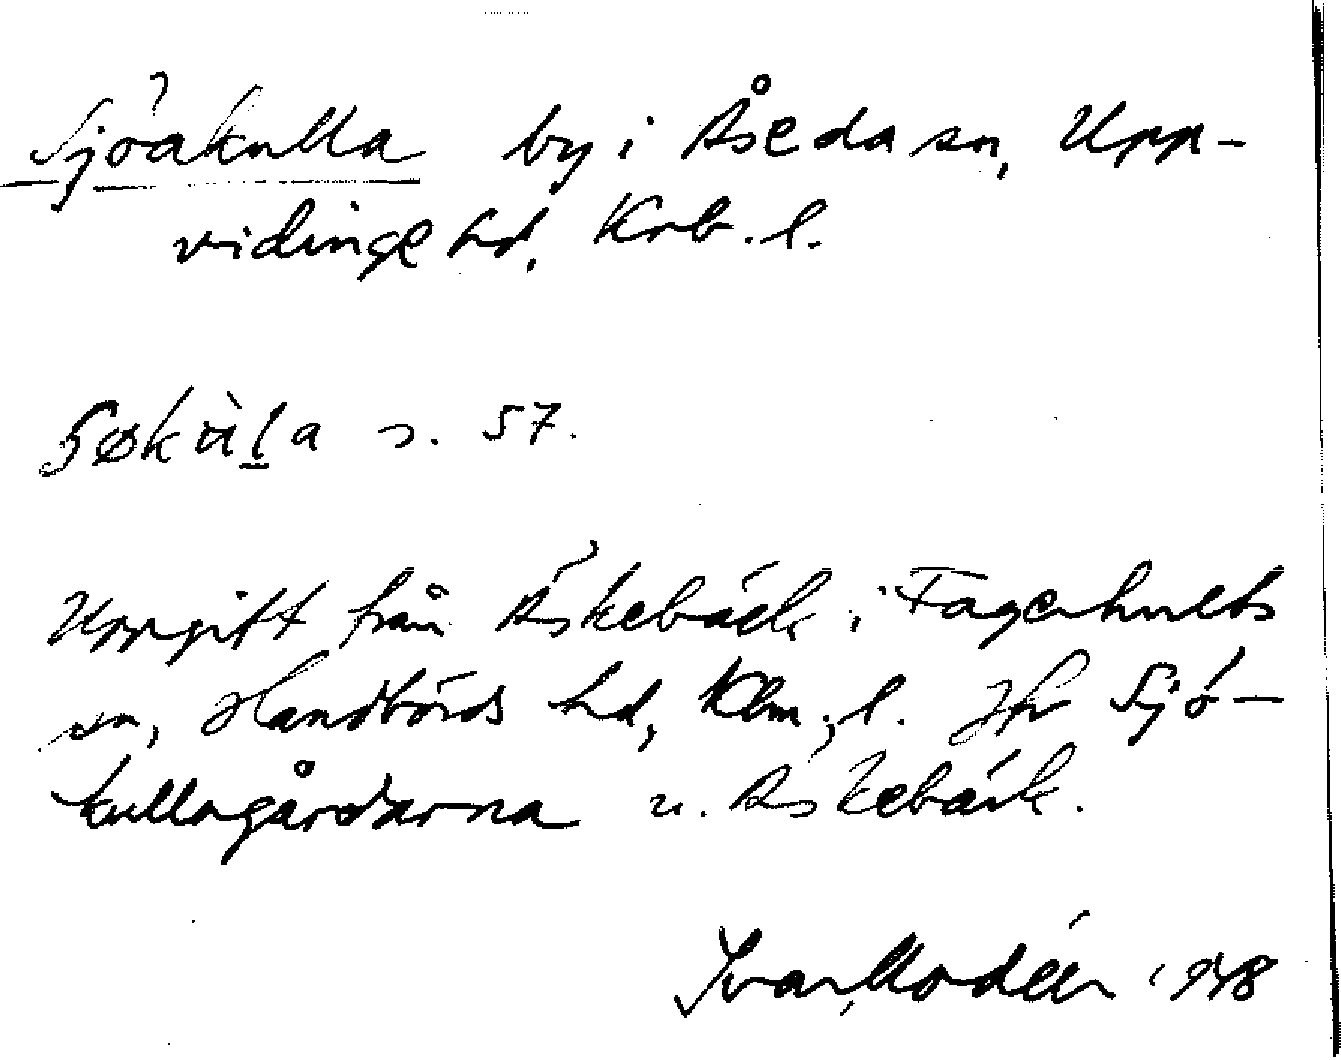 Sjöakulla by i Åseda sn, Upp-
vidinge hd, Krb. l.
s. 57.
Uppgift från Äskebäck i Fagerhults
sn, Handbörds hd, Klm. l. Jfr Sjö-
kullagårdarna u. Äskebäck.
Ivar Modéer 1948